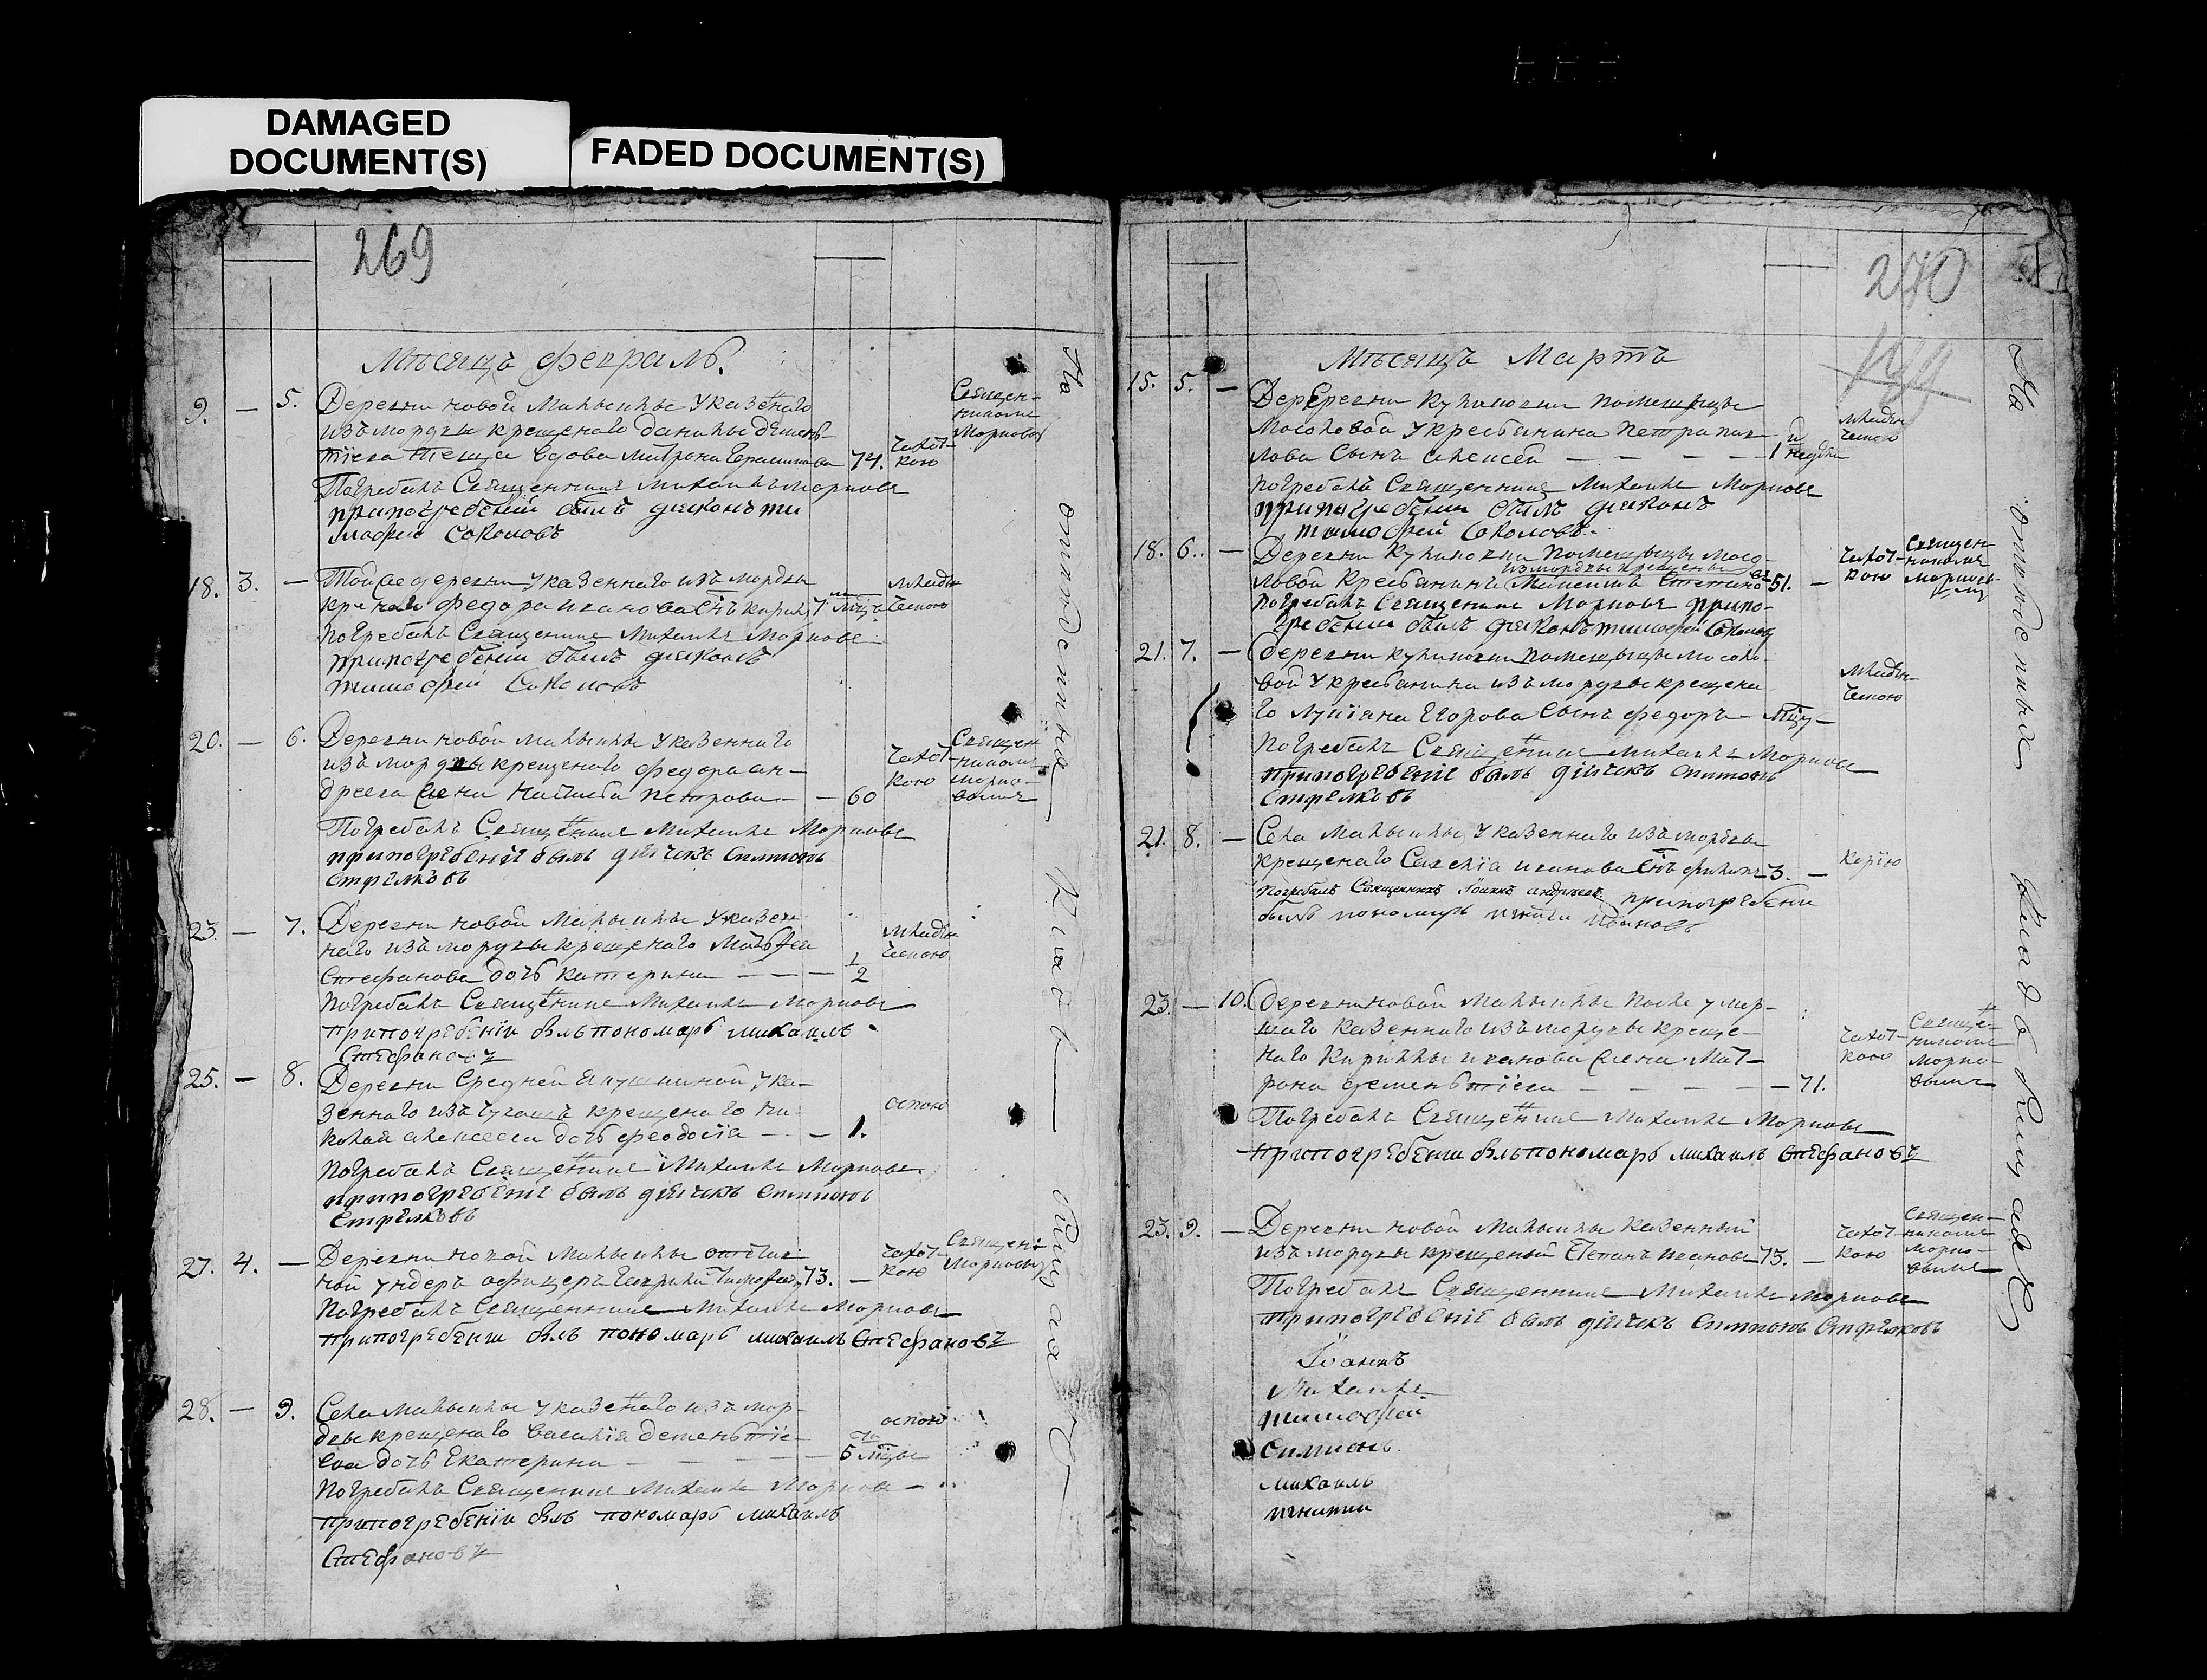 DAMAGED
DOCUMENT(S)
FADED DOCUMENT(S)
269
Мѣсяцъ февраль.
9. — 5. Деревни новой Малыклы указеннаго
изъ мордвы крещенаго данилы демень-
тiева теща вдова Матрона Герасимова 74. чахот-
кою
Священ-
никомъ
Морновы
Погребалъ Священникъ Михаилъ Морновъ
припогребенiи былъ дiяконъ ти
мофей Соколовъ
18. 3. — Той же деревни указеннаго изъ мордвы
кре наго федора иванова снъ 7 младѣн
ческою
погребалъ Священникъ Михаилъ Морновъ
припогребенiи былъ дiяконъ
тимофей Соколовъ
20. — 6. Деревни новой малыклы указеннаго
изъ мордвы крещенаго федора ан-
дреева жена Наталья петрова — 60 чахот-
кою
Священ
никомъ
морно-
вымъ
Погребалъ Священникъ Михаилъ Морновъ
припогребенiе былъ дiячекъ симионъ
стрелковъ
23. — 7. Деревни новой Малыклы указен
наго изъ мордвы крещенаго Матвея
Стефанова дочь катерина — — — 1/2 младѣн
ческою
погребалъ Священникъ Михаилъ Морновъ
припогребенiи былъ пономарь михаилъ
Стефановъ
25. — 8. Деревни Средней Якушкиной ука-
зеннаго изъ чувашъ крещенаго ни
колая алексеева дочь феодосiя — — 1. оспою
погребалъ Священникъ Михаилъ Морновъ
припогребенiе былъ дiячекъ симионъ
Стрелковъ
27. 4. — Деревни новой Малыклы отстав
ной ундеръ офицеръ Гаврила Тимофеевъ 73. — чахот-
кою
Священ
Морновы
погребалъ Священникъ Михаилъ Морновъ
припогребенiи былъ пономарь михаилъ Стефановъ
28. — 9. Села малыклы указеннаго изъ мор-
двы крещенаго василiя дементiе-
ева дочь Екатерина — — — — 5 мцы оспою
погребалъ Священникъ Михаилъ Морновъ
припогребенiи былъ пономарь михаилъ
Стефановъ
На отведенномъ Кладбищахъ
270
Мѣсяцъ Мартъ
15. 5. — Деревни помещицы
Мосоловой у крестьянина петра пав
лова Сынъ алексей — — — — 1 недѣли младѣн
ческою
погребалъ Священникъ Михаилъ Морновъ
припогребенiи былъ дiяконъ
тимофей Соколовъ
18. 6. — Деревни помещицы Мосо-
ловой крестьянинъ изъ мордвы крещены 51. — чахот-
кою
Священ
никомъ
погребалъ Священникъ Морновъ припо-
гребенiи былъ дiяконъ тимофей Соколовъ
21. 7. — деревни помещицы мосоло-
вой у крестьянина изъ мордвы крещена
го лукiяна Егорова Сынъ федоръ — младѣн-
ческою
погребалъ Священникъ михаилъ Морновъ
припогребенiе былъ дiячекъ симионъ
стрелковъ
21. 8. — Села малыклы указеннаго изъ мордвы
крещенаго Савелiя иванова снъ филипъ 3. — корiю
погребалъ Священникъ Iоаннъ андреевъ припогребени
былъ пономарь игнатiи Ивановъ
23. — 10. деревни новой Малыклы после умер-
шаго казеннаго изъ мордвы креще-
наго кирилы иванова жена Мат-
рона дементьтiева — — — — — 71. чахот-
кою
Священ-
никомъ
морно-
вымъ
Погребалъ Священникъ Михаилъ Морновъ
припогребенiи былъ пономарь михаилъ Стефановъ
23. 9. — Деревни новой Малыклы казенный
изъ мордвы крещеный Степанъ ивановъ 75. — чахот-
кою
Священ-
никомъ
морно-
вымъ
Погребалъ Священникъ Михаилъ морновъ
припогребенiе былъ дiячекъ симионъ Стрелковъ
Iоаннъ
Михаилъ
тимофей
Симионъ
михаилъ
игнатiи
На отведенныхъ Кладбищахъ